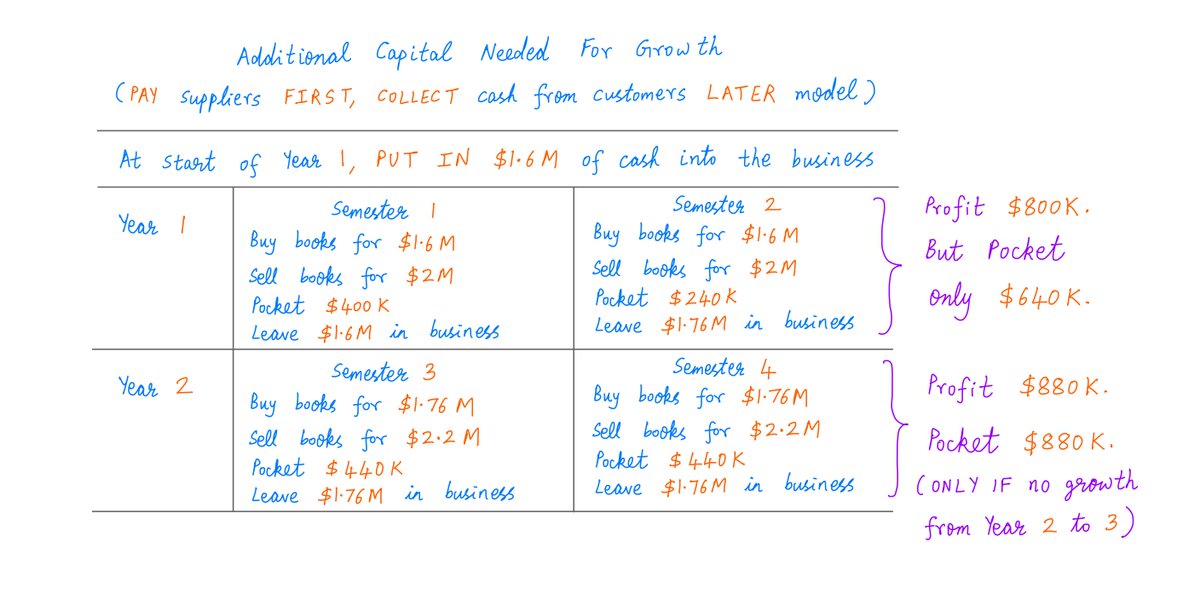 Additional Capital Needed For Growth
(PAY suppliers FIRST, COLLECT cash from customers LATER model)
At start of Year 1, PUT IN $1.6M of cash into the business
Year 1
Semester 1
Buy books for $1.6M
Sell books for $2M
Pocket $400K
Leave $1.6M in business
Semester 2
Buy books for $1.6M
Sell books for $2M
Pocket $240K
Leave $1.76M in business
Profit $800K.
But Pocket
only $640K.
Year 2
Semester 3
Buy books for $1.76M
Sell books for $2.2M
Pocket $440K
Leave $1.76M in business
Semester 4
Buy books for $1.76M
Sell books for $2.2M
Pocket $440K
Leave $1.76M in business
Profit $880K.
Pocket $880K.
(ONLY IF no growth
from Year 2 to 3)